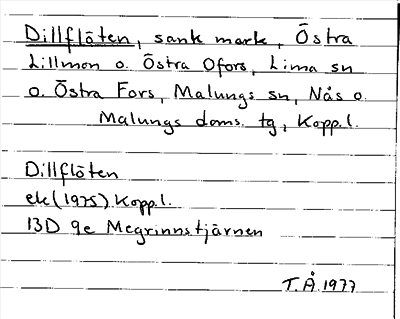 Dillflöten, sank mark, Östra
Lillmon o. Östra Ofors, Lima sn
o. Östra Fors, Malungs sn, Nås o.
Malungs doms. tg, Kopp.l.
Dillflöten
ek (1975) Kopp.l.
13D 9e Megrinnstjärnen
T.Å. 1977